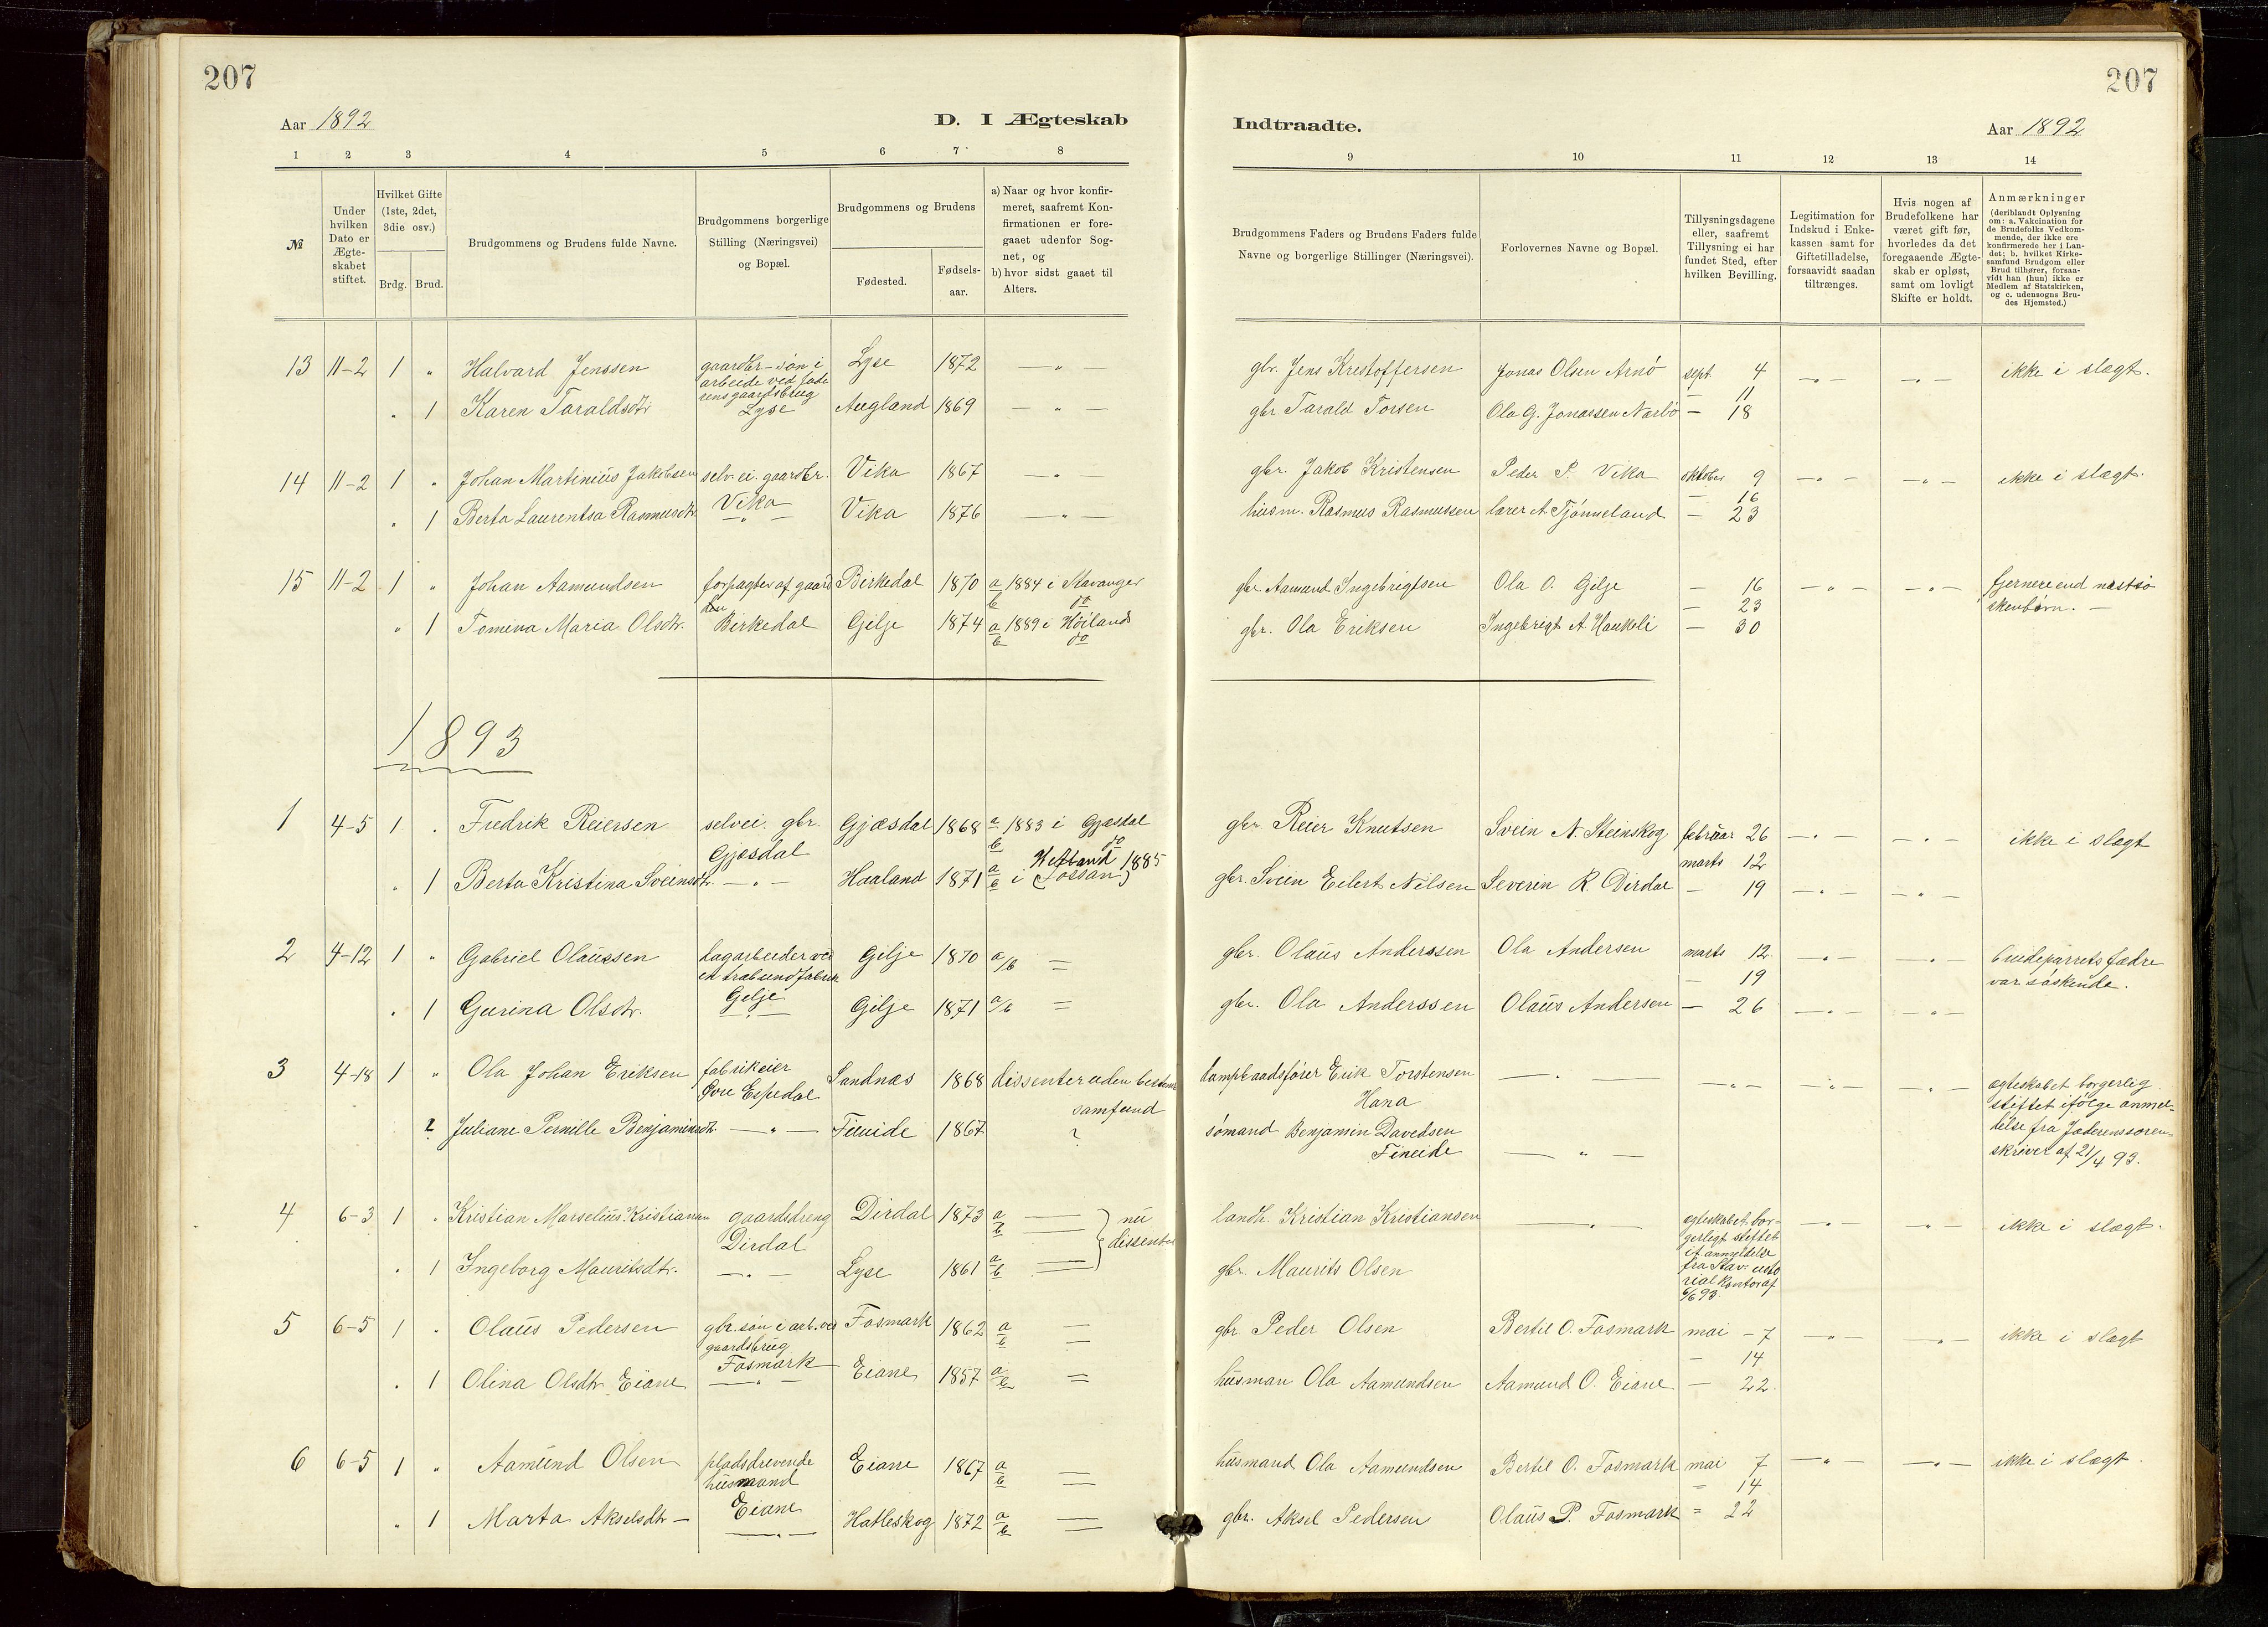 207
207
Aar 1892
D. I Ægteskab
Indtraadte.
Aar 1892
1 2 3 4 5 6 7 8 9 10 11 12 13 14
№
Under hvilken Dato er Ægte-skabet stiftet.
Hvilket Gifte (1ste, 2det, 3die osv.)
Brdg. Brud.
Brudgommens og Brudens fulde Navne.
Brudgommens borgerlige Stilling (Næringsvei) og Bopæl.
Brudgommens og Brudens
Fødested.
Fødsels-aar.
a) Naar og hvor konfir-meret, saafremt Kon-firmationen er fore-gaaet udenfor Sog-net, og
b) hvor sidst gaaet til Alters.
Brudgommens Faders og Brudens Faders fulde Navne og borgerlige Stillinger (Næringsvei).
Forlovernes Navne og Bopæl.
Tillysningsdagene eller, saafremt Tillysning ei har fundet Sted, efter hvilken Bevilling.
Legitimation for Indskud i Enke-kassen samt for Giftetilladelse, forsaavidt saadan tiltrænges.
Hvis nogen af Brudefolkene har været gift før, hvorledes da det foregaaende Ægte-skab er opløst, samt om lovligt Skifte er holdt.
Anmærkninger
(deriblandt Oplysning om: a. Vakcination for de Brudefolks Vedkom-mende, der ikke ere konfirmerede her i Lan-det; b. hvilket Kirke-samfund Brudgom eller Brud tilhører, forsaa-vidt han (hun) ikke er Medlem af Statskirken, og c. udensogns Bru-des Hjemsted.)
13 11-2 1 " Halvard Jenssen gaardbr-søn i arbeide ved fade rens gaardsbrug Lyse 1872 — " — gbr. Jens Kristoffersen Jonas Olsen Arnö sept. 4 — " — — " — ikke i slægt.
— 11
" 1 Karen Taraldsdtr Lyse Augland 1869 — " — gbr Tarald Torsen Ola G. Jonassen Nærbö — 18
14 11-2 1 " Johan Martinius Jakobsen selv.ei. gaardbr. Vika 1867 — " — gbr. Jakob Kristensen Peder P. Vika oktober 9 — " — — " — ikke i slægt.
— 16
" 1 Berta Laurentsa Rasmusdtr. Vika — " — Vika 1876 — " husm. Rasmus Rasmussen lærer A. Tjönneland — 23
15 11-2 1 " Johan Aamundsen forpagter af gaard den Birkedal 1870 a 1884 i Stavanger b do gbr Aamund Ingebrigtsen Ola O. Gilje — 16 — " — — " — fjernere end næstsö
— 23 skenbörn. —
" 1 Tomina Maria Olsdtr. Birkedal Gilje 1874 a 1889 i Höiland b do gbr. Ola Eriksen Ingebrigt A. Haukeli — 30
1893
1 4-5 1 " Fredrik Reiersen selvei. gbr. Gjæsdal 1868 a 1883 i Gjæsdal b do gbr Reier Knutsen Svein N. Steinskog februar 26 — " — — " — ikke i slægt
Gjæsdal marts 12
" 1 Berta Kristina Sveinsdtr. — " — Haaland 1871 a b i (Fossan) 1885 gbr. Svein Eilert Nilsen Severin R. Dirdal — 19 — " — — " —
2 4-12 1 " Gabriel Olaussen dagarbeider ved Gilje 1870 a/b = gbr. Olaus Anderssen Ola Andersen marts 12 — " — — " — brudeparrets fædre
Gilje — 19 var söskende.
" 1 Gurina Olsdtr. — " — Gilje 1871 a/b = gbr. Ola Anderssen Olaus Andersen — 26 — " — — " —
3 4-18 1 " Ola Johan Eriksen fabrikeier Övre Espedal Sandnæs 1868 dissenter uden bestemt samfund Erik Torstensen Hana — " — — " — — " — — " — ægteskabet borgerlig
stiftet ifölge anmel-
delse fra Jæderens soren-
skriver af 21/4 93.
? Juliane Pernille Benjaminsdtr. — " — Fineide 1867 ? sömand Benjamin Davedsen Fineide — " —
4 6-3 1 " Kristian Marselius Kristiansen gaardsdreng Dirdal Dirdal 1873 a b — nu dissenter landh. Kristian Kristiansen — " — ægteskabet bor-
gerligt stiftet
anmeldelse
fra Stav.
6/6 93. — " — — " — ikke i slægt.
" 1 Ingeborg Mauritsdtr. — " — Lyse 1861 a b = gbr. Maurits Olsen
5 6-5 1 " Olaus Pedersen gbr. sön i arb. ved gaardsbrug Fosmark 1862 a b = gbr Peder Olsen Bertil O. Fosmark mai - 7 — " — — " — ikke i slægt
— 14
" 1 Olina Olsdtr Eiane Fosmark — " — Eiane 1857 a b = husman Ola Aamundsen Aamund O. Eiane — 22.
6 6-5 1 " Aamund Olsen pladsdrevende husmand Eiane 1867 a b = husmand Ola Aamundsen Bertel O. Fosmark mai 7 — " — — " — ikke i slægt.
= 14
" 1 Marta Akselsdtr — Eiane — " — Hatleskog 1872 a b = gbr. Aksel Pedersen Olaus P. Fosmark = 22